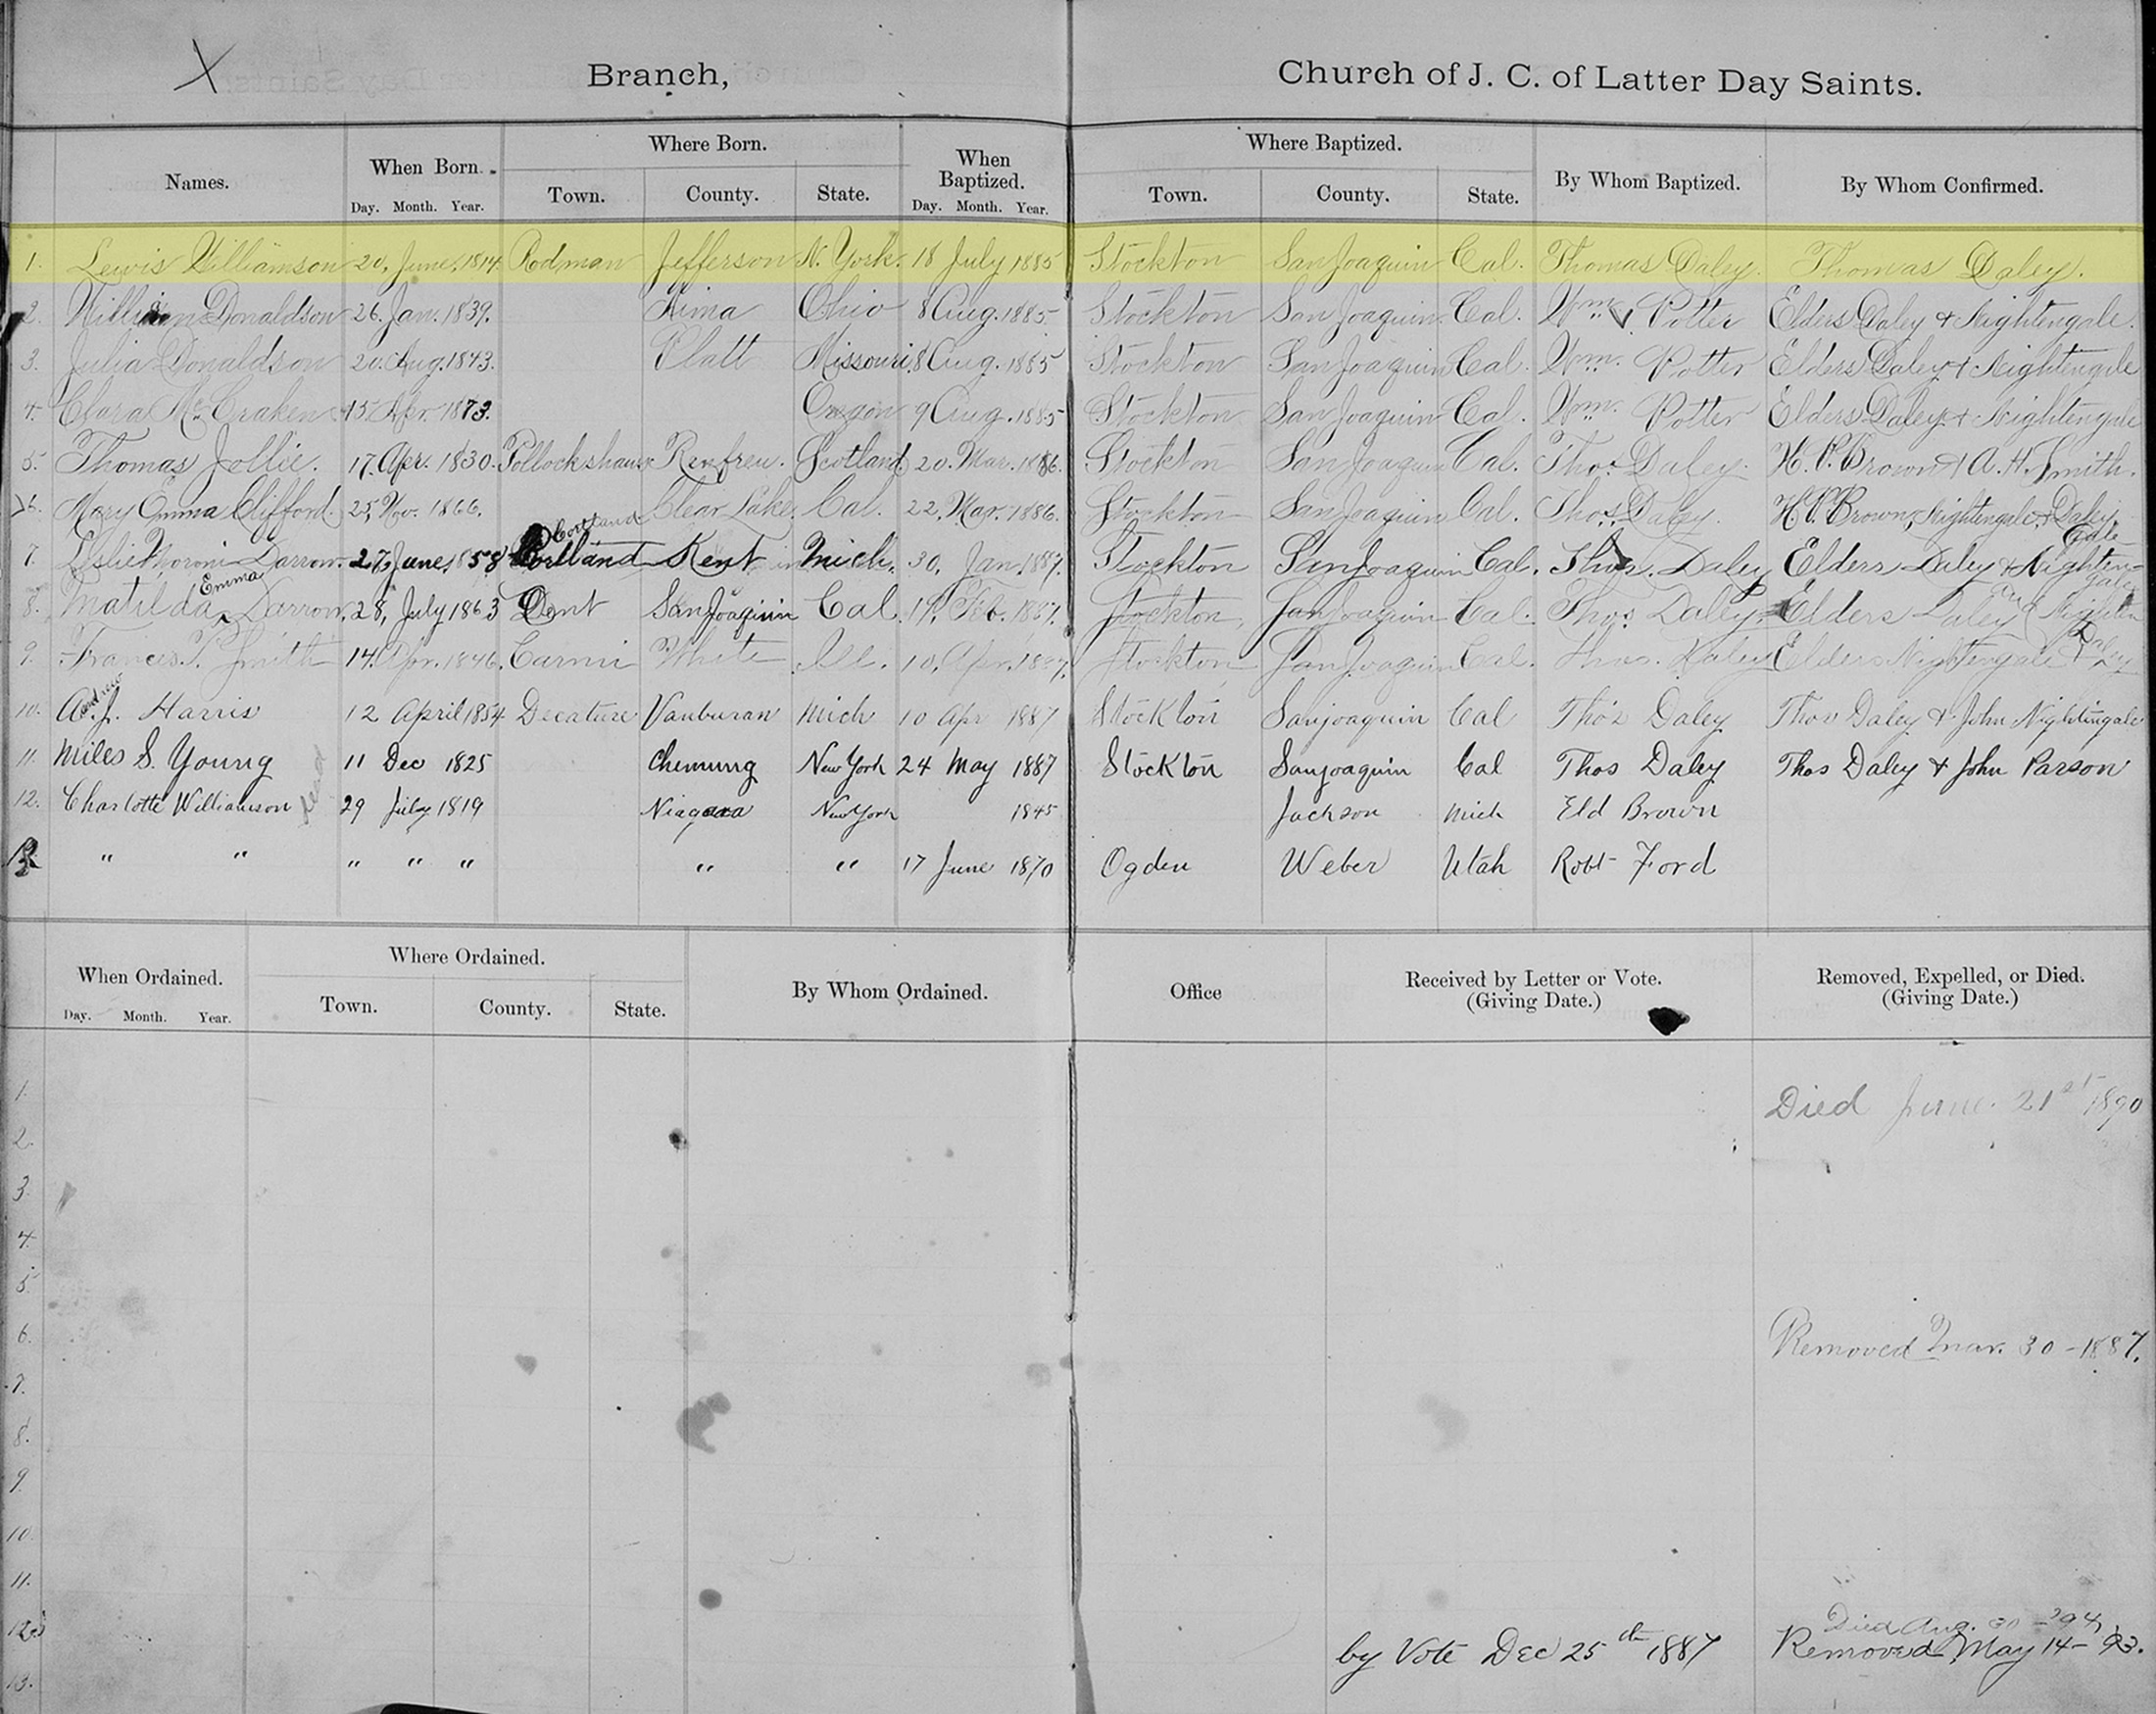 X
Branch, Church of J. C. of Latter Day Saints.
Where Born. Where Baptized.
Names. When Born. Town. County. State. When Baptized. Town. County. State. By Whom Baptized. By Whom Confirmed.
Day. Month. Year. Day. Month. Year.
1. Lewis Williamson 20, June, 1814 Rodman Jefferson N. York. 18 July 1885 Stockton San Joaquin Cal. Thomas Daley. Thomas Daley.
2. William Donaldson 26. Jan. 1839. Lima Ohio 8 Aug. 1885 Stockton San Joaquin Cal. Wm. Potter Elders Daley & Nightengale.
3. Julia Donaldson 20. Aug. 1843. Platt Missouri 8 Aug. 1885 Stockton San Joaquin Cal. Wm. Potter Elders Daley & Nightengale
4. Clara McCraken 15 Apr. 1873. Oregon 9 Aug. 1885 Stockton San Joaquin Cal. Wm. Potter Elders Daley & Nightengale
5. Thomas Jollie. 17. Apr. 1830. Pollockshaws Renfreu. Scotland 20. Mar. 1886. Stockton San Joaquin Cal. Thos. Daley. H. P. Brown & A. H. Smith.
6. Mary Emma Clifford. 25, Nov. 1866. Clear Lake. Cal. 22, Mar. 1886. Stockton San Joaquin Cal. Thos. Daley. H. P. Brown, Nightengale, & Daley
7. Leslie Moroni Darrow. 27, June, 1858 Cortland Kent Mich. 30, Jan. 1887. Stockton San Joaquin Cal. Thos. Daley Elders Daley & Nightengale
8. Matilda Emma Darrow. 28, July 1863 Dent San Joaquin Cal. 19, Feb. 1887. Stockton, San Joaquin Cal. Thos. Daley. Elders Daley
9. Frances. P. Smith 14. Apr. 1846. Carmi White Ill. 10, Apr. 1887. Stockton San Joaquin Cal. Thos. Daley Elders Nightengale & Daley
10. Andrew J. Harris 12 April 1854 Decature Vanburan Mich 10 Apr 1887 Stockton Sanjoaquin Cal Thos Daley Thos Daley & John Nightingale
11. Miles S. Young 11 Dec 1825 Chemung New York 24 May 1887 Stockton Sanjoaquin Cal Thos Daley Thos Daley & John Parson
12. Charlotte Williamson 29 July 1819 Niagara New York 1845 Jackson Mich Eld Brown
13 " " " " " " " 17 June 1870 Ogden Weber Utah Robt Ford
When Ordained. Where Ordained. By Whom Ordained. Office Received by Letter or Vote. (Giving Date.) Removed, Expelled, or Died. (Giving Date.)
Day. Month. Year. Town. County. State.
1. Died June 21st 1890
2.
3.
4.
5.
6. Removed Mar. 30 - 1887.
7.
8.
9.
10.
11.
Died Aug. 30 - 94
12. by Vote Dec 25th 1887 Removed May 14 - 93.
13.